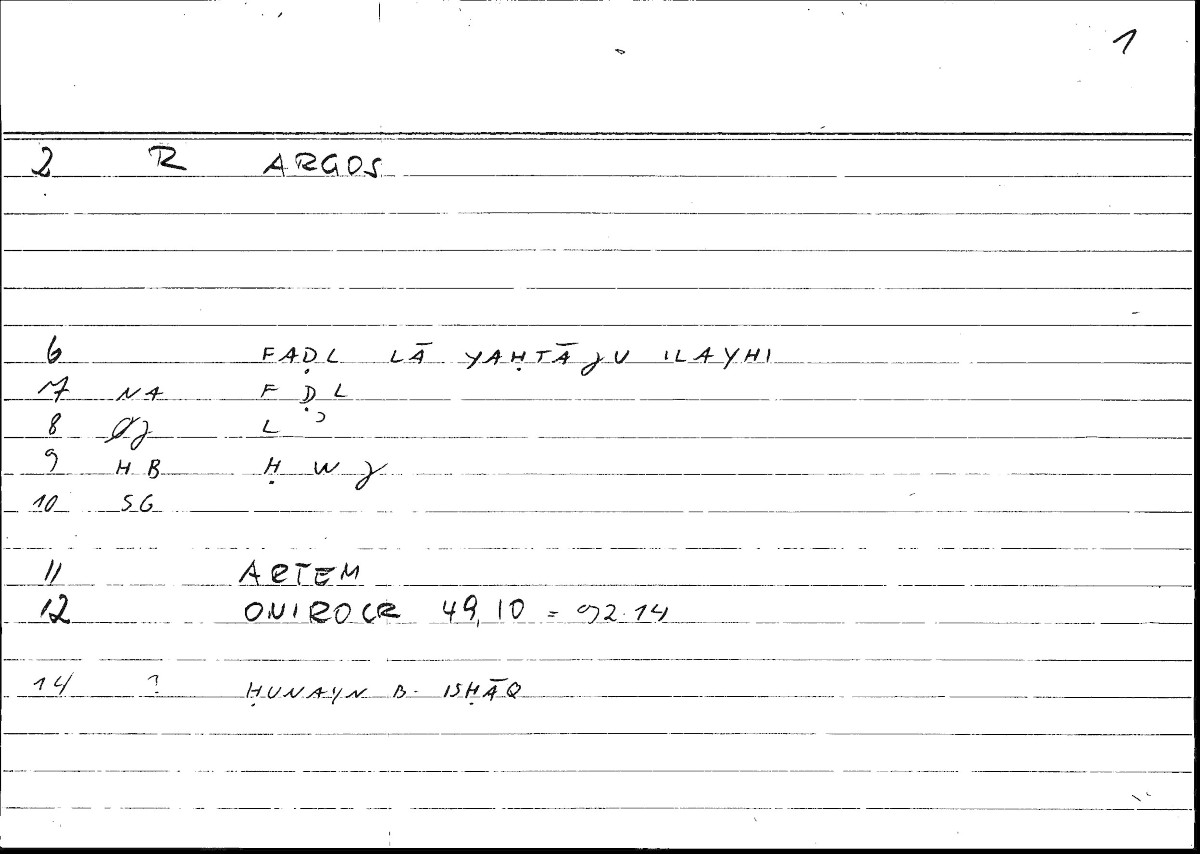 1
2 R ARGOS
6 FAḌL LĀ YAḤTĀJU ILAYHI
7 NA F Ḍ L
8 ØJ L ʾ
9 HB Ḥ W J
10 SG
11 ARTEM
12 ONIROCR 49,10 = 92.14
14 ? ḤUNAYN B. ISḤĀQ